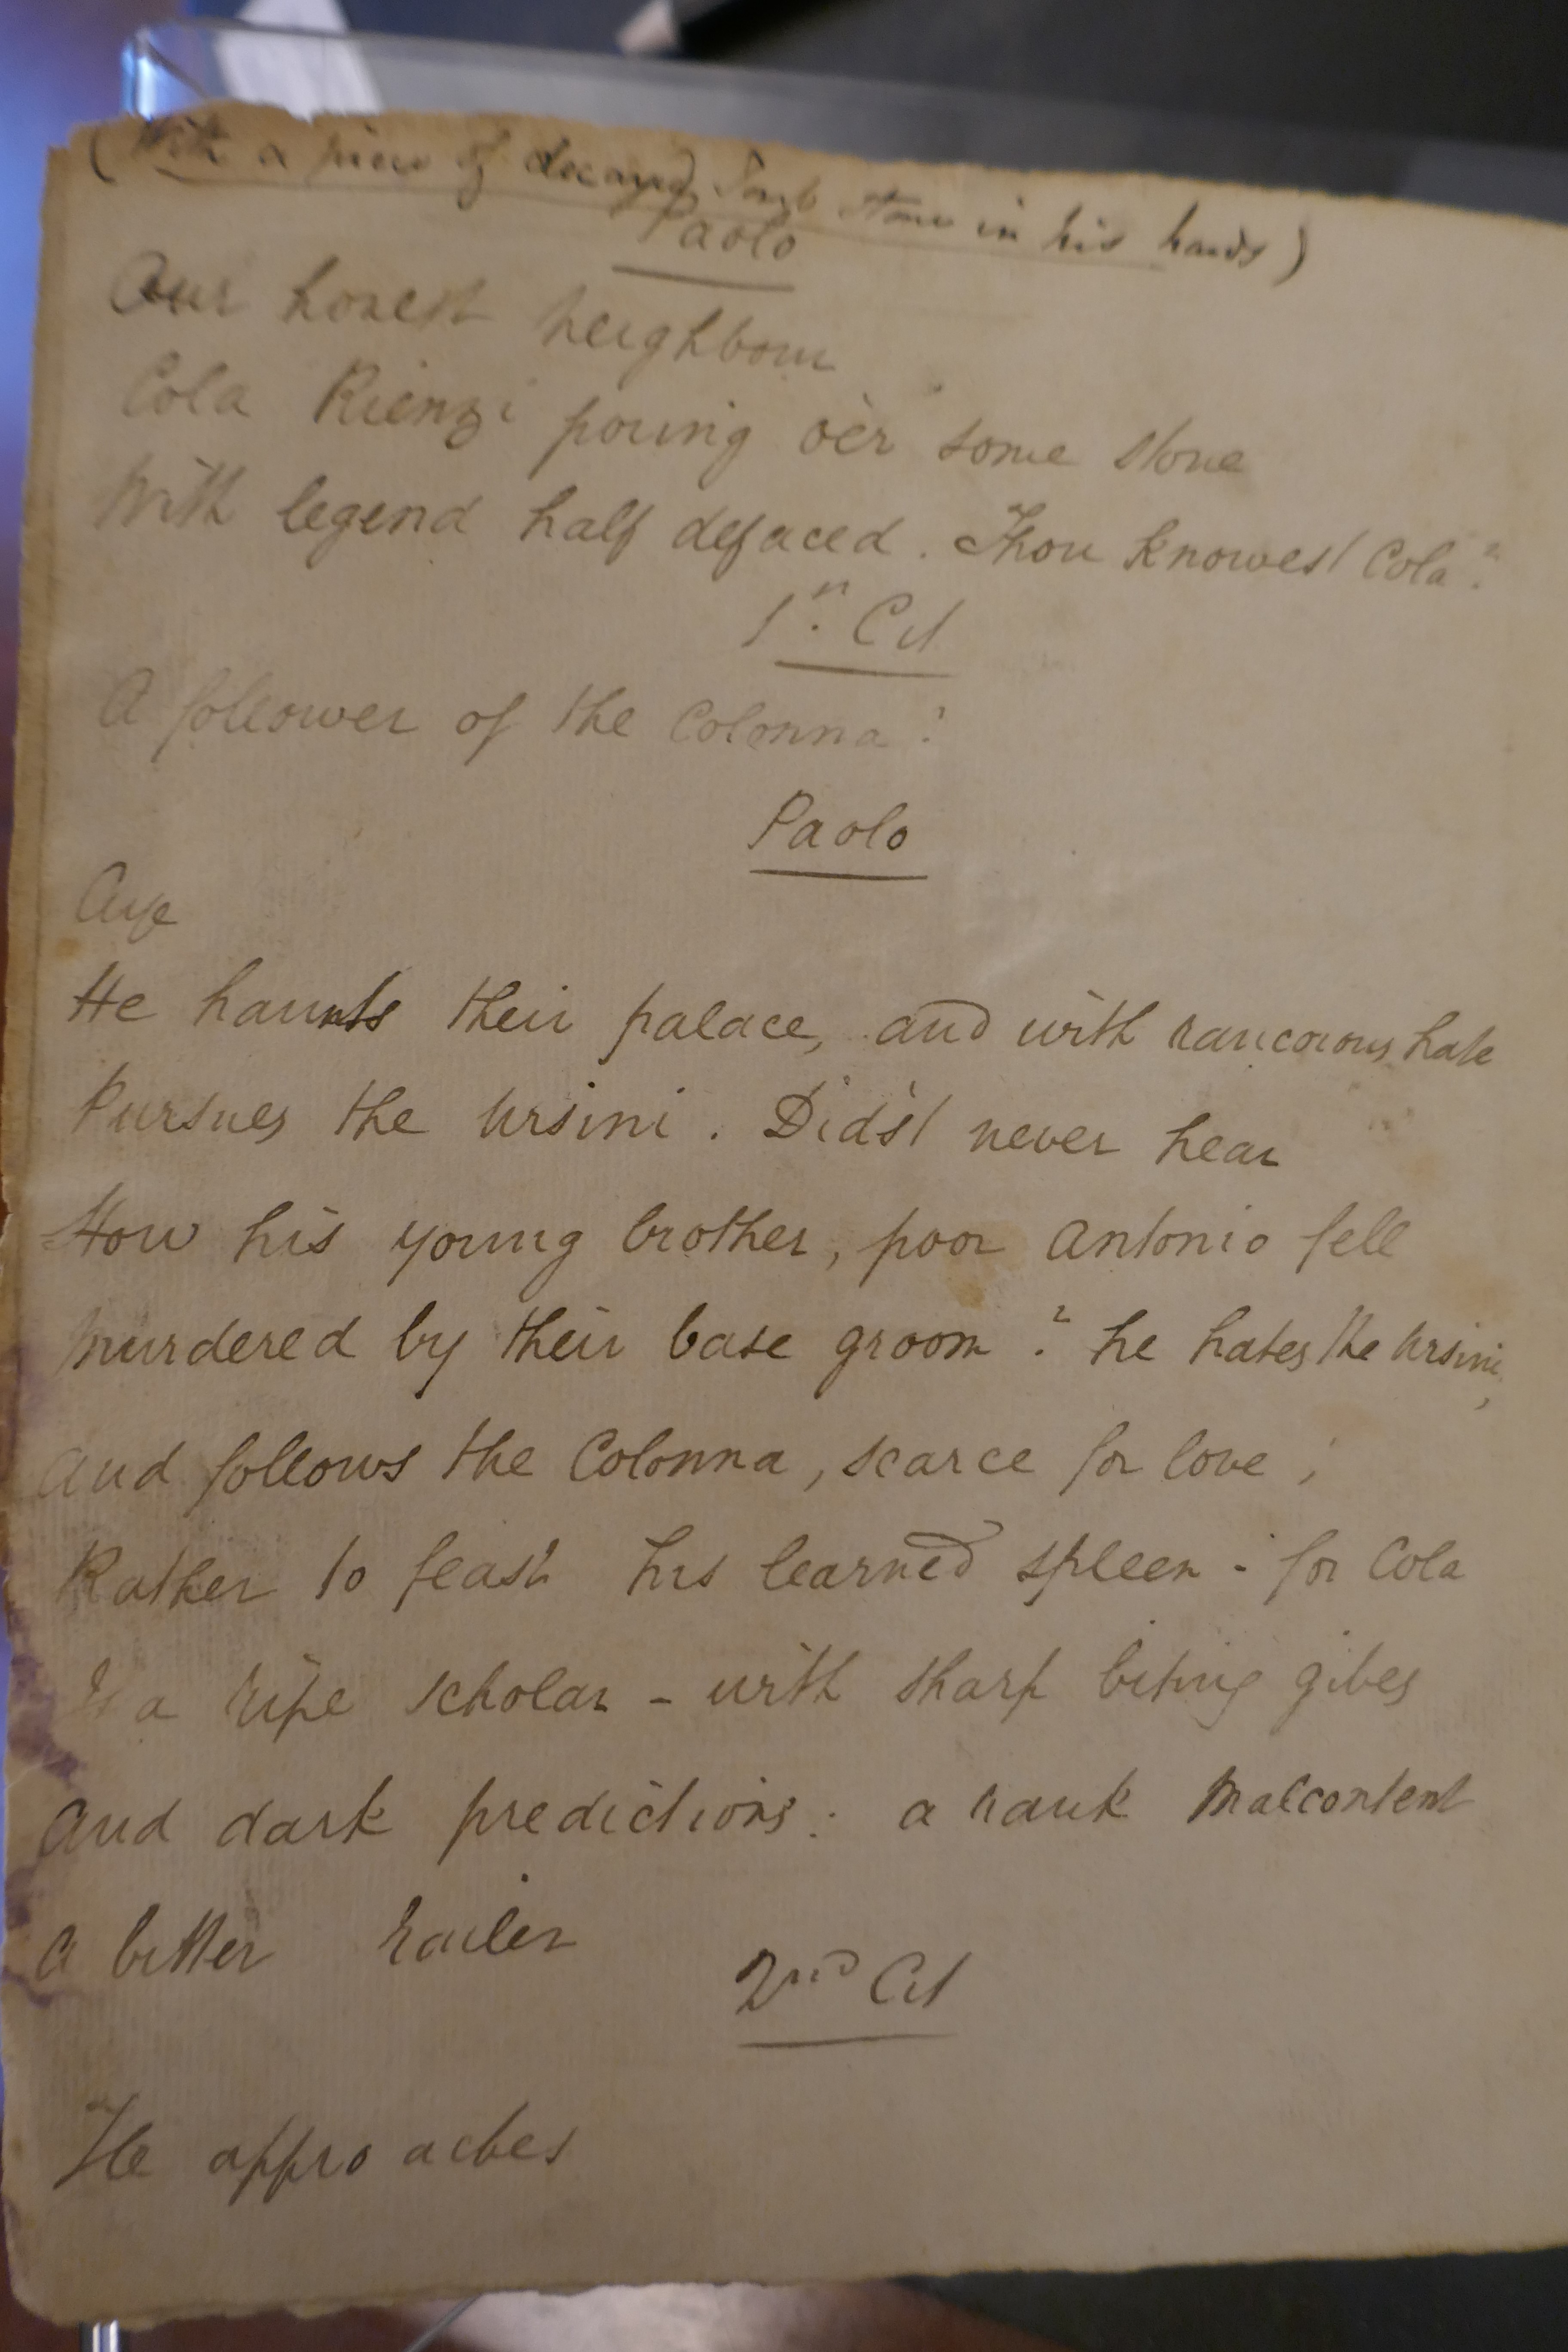 (With a piece of decayed Tomb stone in his hands)
Paolo
Our honest neighbour
Cola Rienzi poring o'er some stone
With legend half defaced. Thou knowest Cola?
1st. Cit
A follower of the Colonna?
Paolo
Aye
He haunts their palace, and with rancorous hate
Pursues the Ursini. Did'st never hear
How his young brother, poor Antonio fell
Murdered by their base groom? he hates the Ursini,
And follows the Colonna, scarce for love;
Rather to feast his learned spleen - for Cola
Is a ripe scholar - with sharp biting gibes
And dark predictions: a rank Malcontent
A bitter railer
2nd Cit
He approaches